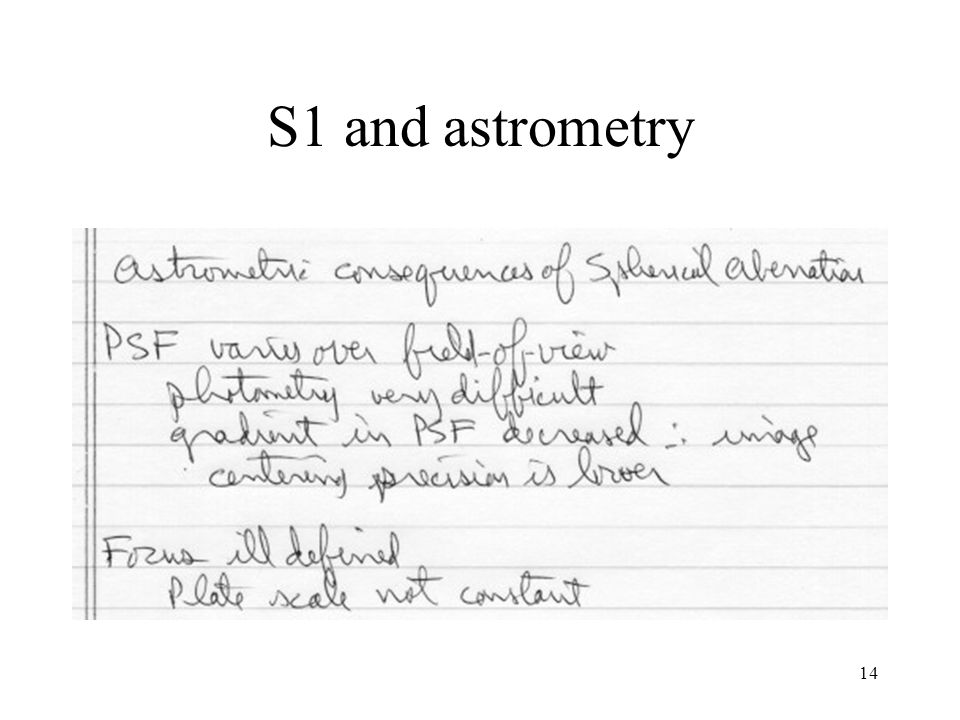 S1 and astrometry
Astrometric consequences of Spherical Aberration
PSF varies over field-of-view
photometry very difficult
gradient in PSF decreased ∴ image
centering precision is lower
Focus ill defined
Plate scale not constant
14